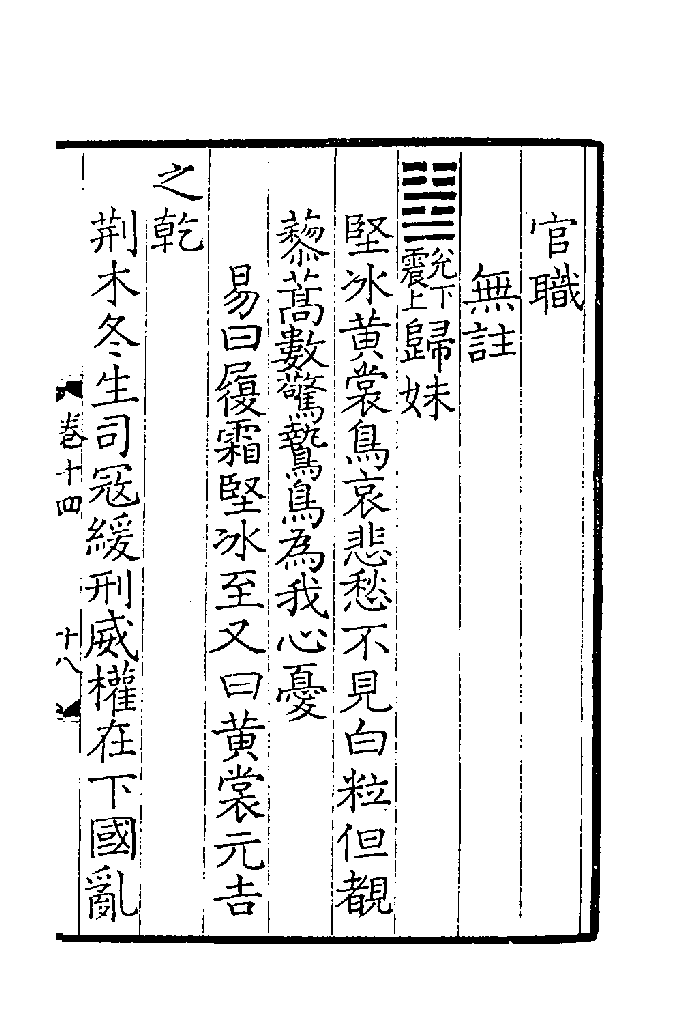 官職
無註
䷵兌下震上歸妹
堅冰黃裳鳥哀悲愁不見白粒但覩
藜蒿數驚鷙鳥為我心憂
易曰履霜堅冰至又曰黃裳元吉
之乾
荆木冬生司冦緩刑威權在下國亂
卷十四
十八